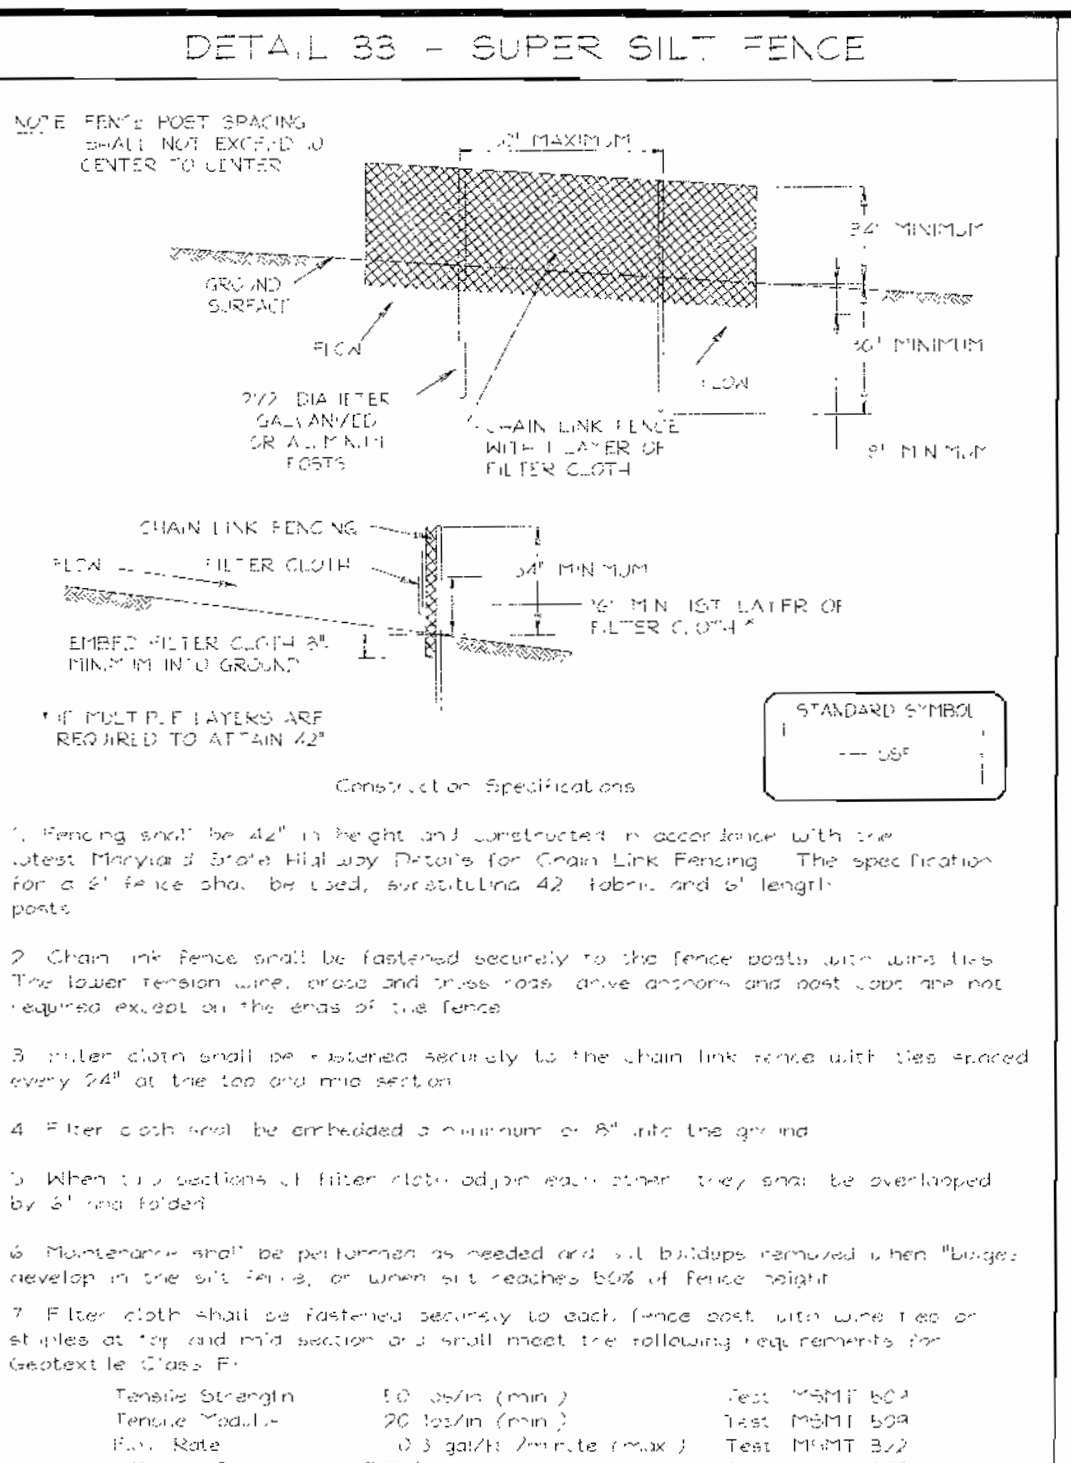 DETAIL 33 - SUPER SILT FENCE
NOTE: FENCE POST SPACING
SHALL NOT EXCEED 10'
CENTER TO CENTER
10' MAXIMUM
34" MINIMUM
GROUND
SURFACE
FLOW
36" MINIMUM
FLOW
2 1/2" DIAMETER
GALVANIZED
OR ALUMINUM
POSTS
CHAIN LINK FENCE
WITH 1 LAYER OF
FILTER CLOTH
8" MINIMUM
CHAIN LINK FENCING
FLOW
FILTER CLOTH
34" MINIMUM
16" MIN. 1ST LAYER OF
FILTER CLOTH *
EMBED FILTER CLOTH 8"
MINIMUM INTO GROUND
* IF MULTIPLE LAYERS ARE
REQUIRED TO ATTAIN 42"
STANDARD SYMBOL
SSF
Construction Specifications
1. Fencing shall be 42" in height and constructed in accordance with the
latest Maryland State Highway Details for Chain Link Fencing. The specification
for a 6' fence shall be used, substituting 42" fabric and 6' length
posts.
2. Chain link fence shall be fastened securely to the fence posts with wire ties.
The lower tension wire, brace and truss rods, drive anchors and post caps are not
required except on the ends of the fence.
3. Filter cloth shall be fastened securely to the chain link fence with ties spaced
every 24" at the top and mid section.
4. Filter cloth shall be embedded a minimum of 8" into the ground.
5. When two sections of filter cloth adjoin each other, they shall be overlapped
by 6" and folded.
6. Maintenance shall be performed as needed and silt buildups removed when "bulges"
develop in the silt fence, or when silt reaches 50% of fence height
7. Filter cloth shall be fastened securely to each fence post with wire ties or
staples at top and mid section and shall meet the following requirements for
Geotextile Class F:
Tensile Strength 50 lbs/in (min.) Test: MSMT 509
Tensile Modulus 20 lbs/in (min.) Test: MSMT 509
Flow Rate 0.3 gal/ft /minute (max.) Test: MSMT 322